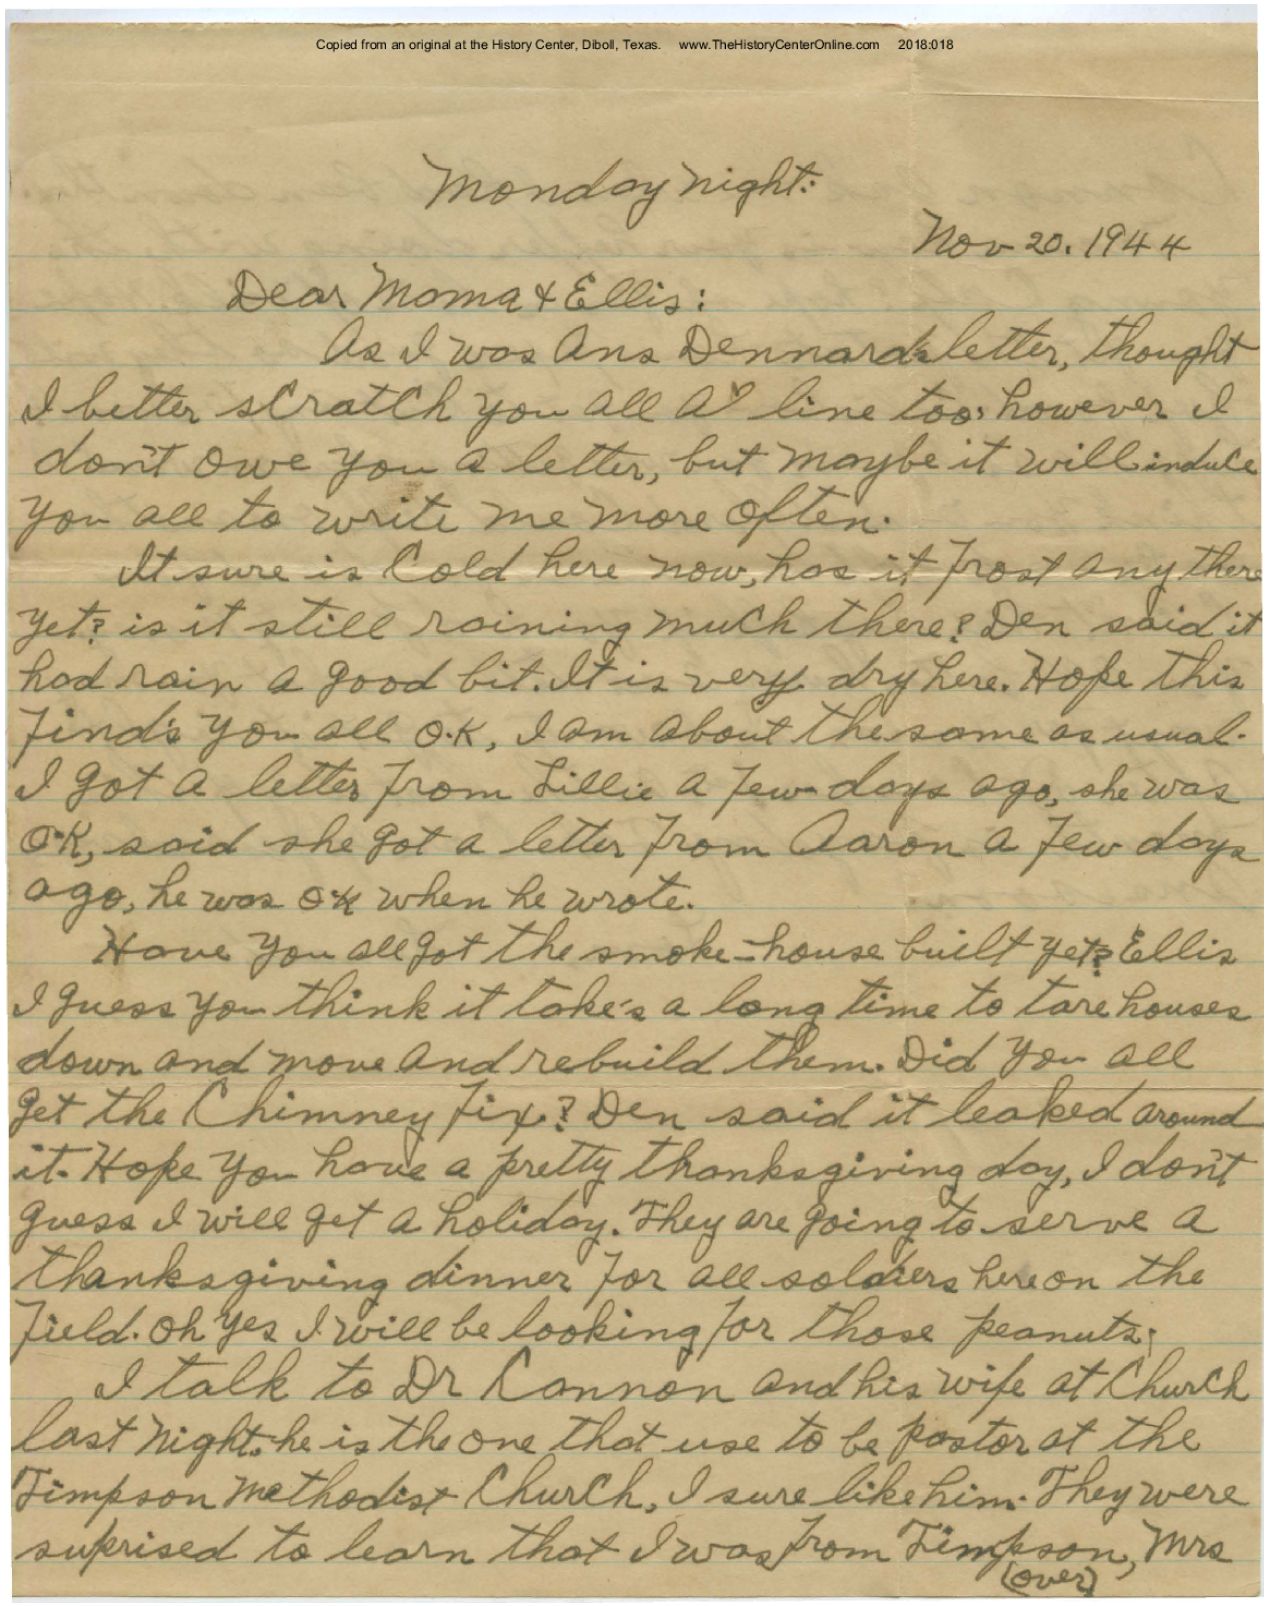 Copied from an original at the History Center, Diboll, Texas. www.TheHistoryCenterOnline.com 2018:018
Monday night:
Nov 20. 1944
Dear Moma & Ellis:
As I was Ans Dennards letter, thought
I better scratch you all a line too, however I
don't owe you a letter, but maybe it will induce
you all to write me more often.
It sure is Cold here now, has it frost any there
yet? is it still raining much there? Den said it
had rain a good bit. It is very dry here. Hope this
find's you all O.K, I am about the same as usual.
I got a letter from Lillie a few days ago, she was
O.K, said she got a letter from Aaron a few days
ago, he was O.K when he wrote.
Have you all got the smoke-house built yet? Ellis
I guess you think it take's a long time to tare houses
down and move and rebuild them. Did you all
get the Chimney fix? Den said it leaked around
it. Hope you have a pretty thanksgiving day, I don't
guess I will get a holiday. They are going to serve a
thanksgiving dinner for all soldiers here on the
field. Oh yes I will be looking for those peanuts;
I talk to Dr Cannon and his wife at Church
last night. he is the one that use to be pastor at the
Timpson Methodist Church, I sure like him. They were
suprised to learn that I was from Timpson, Mrs
(over)